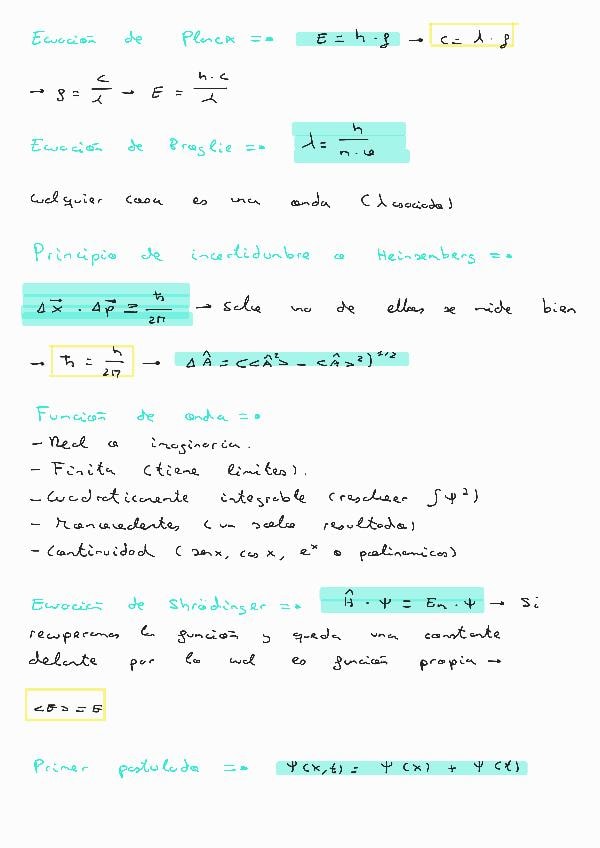 Ecuación de Planck => E = h · f → c = λ · f
→ f = c/λ → E = h · c/λ
Ecuación de Broglie => λ = h/m · v
cualquier cosa es una onda (λ asociada)
Principio de incertidumbre o Heinsenberg =>
Δx⃗ · Δp⃗ ≥ ħ/2π → solo uno de ellos se mide bien
→ ħ = h/2π → ΔÂ = (<Â²> - <Â>²)^1/2
Función de onda =>
- Real o imaginaria.
- Finita (tiene límites).
- Cuadraticamente integrable (resolver ∫ψ²)
- Monovalentes (un solo resultado)
- Continuidad (senx, cos x, e^x o polinomios)
Ecuación de Shrödinger => Ĥ · Ψ = En · Ψ → Si
recuperamos la función y queda una constante
delante por lo cual es función propia →
<E> = E
Primer postulado => Ψ(x,t) = Ψ(x) + Ψ(t)